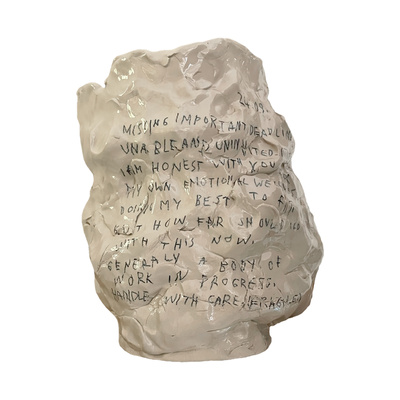 24.09.
MISSING IMPORTANT DEADLIN
UNABLE AND UNINVITED
I AM HONEST WITH YOU
MY OWN EMOTIONAL WE
DOING MY BEST TO
BUT HOW FAR SHOULD I GO
WITH THIS NOW.
GENERALY A BODY OF
WORK IN PROGRESS.
HANDLE WITH CARE. FRAGILE